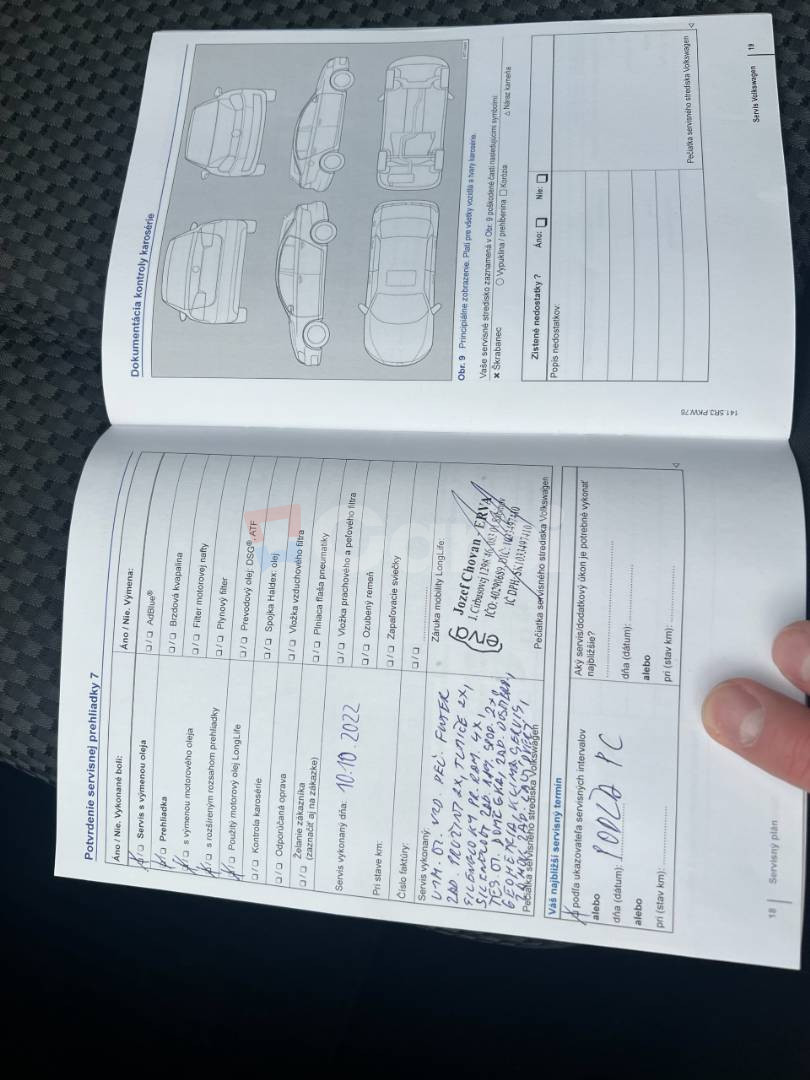 Potvrdenie servisnej prehliadky 7
Áno / Nie. Vykonané boli:
❏ / ❏ Servis s výmenou oleja
❏ / ❏ Prehliadka
❏ / ❏ s výmenou motorového oleja
❏ / ❏ s rozšíreným rozsahom prehliadky
❏ / ❏ Použitý motorový olej LongLife
❏ / ❏ Kontrola karosérie
❏ / ❏ Odporúčaná oprava
❏ / ❏ Želanie zákazníka
(zaznačiť aj na zákazke)
Servis vykonaný dňa: 10.10.2022
Pri stave km:
Číslo faktúry:
Servis vykonaný:
VÝM. OL. VZD. PEĽ. FILTER
ZAD. PRUŽINY 2X, TLMIČE 2X,
SILENBLOKY PR. RAM. 4X,
GEOMETRIA, KLIMA SERVIS,
Pečiatka servisného strediska Volkswagen
Áno / Nie. Výmena:
❏ / ❏ AdBlue®
❏ / ❏ Brzdová kvapalina
❏ / ❏ Filter motorovej nafty
❏ / ❏ Plynový filter
❏ / ❏ Prevodový olej: DSG®, ATF
❏ / ❏ Spojka Haldex: olej
❏ / ❏ Vložka vzduchového filtra
❏ / ❏ Plniaca fľaša pneumatiky
❏ / ❏ Vložka prachového a peľového filtra
❏ / ❏ Ozubený remeň
❏ / ❏ Zapaľovacie sviečky
❏ / ❏ ....................
Záruka mobility LongLife:
Jozef Chovan - ERVA
Pečiatka servisného strediska Volkswagen
Váš najbližší servisný termín
❏ podľa ukazovateľa servisných intervalov
alebo
dňa (dátum): PODĽA PC
alebo
pri (stav km): ....................
Aký servis/dodatkový úkon je potrebné vykonať
najbližšie?
....................
dňa (dátum): ....................
alebo
pri (stav km): ....................
18 | Servisný plán
Dokumentácia kontroly karosérie
Obr. 9 Principiálne zobrazenie. Platí pre všetky vozidlá a tvary karosérie.
Vaše servisné stredisko zaznamená v Obr. 9 poškodené časti nasledujúcimi symbolmi:
✖ Škrabanec ○ Vypuklina / prehĺbenina □ Korózia △ Náraz kameňa
Zistené nedostatky ? Áno: ❏ Nie: ❏
Popis nedostatkov:
Pečiatka servisného strediska Volkswagen
141.5R3.PKW.76
Servis Volkswagen | 19